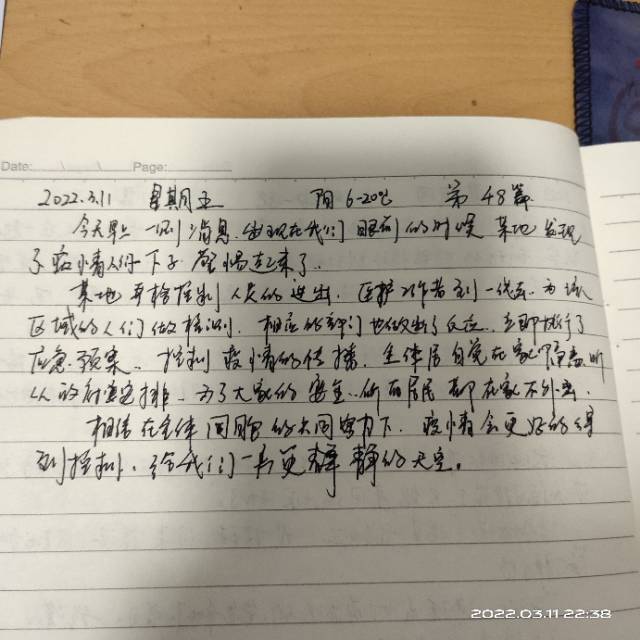 Date: / / Page:
2022.3.11 星期五 阴 6-20℃ 第48篇
今天早上一则消息,出现在我们眼前的时候某地发现
了疫情人们一下子警惕起来了。
某地严格控制人员的进出,医护工作者到一线去,为该
区域的人们做核识别,相应的部门也做出了反应,立即执行了
应急预案,控制疫情的传播,全体居自觉在家隔离听
从政府安排,为了大家的安全,所有居民都在家不外出,
相信在全体同胞的共同努力下,疫情会更好的得
到控制,给我们一片更 静的天空。
2022.03.11 22:38